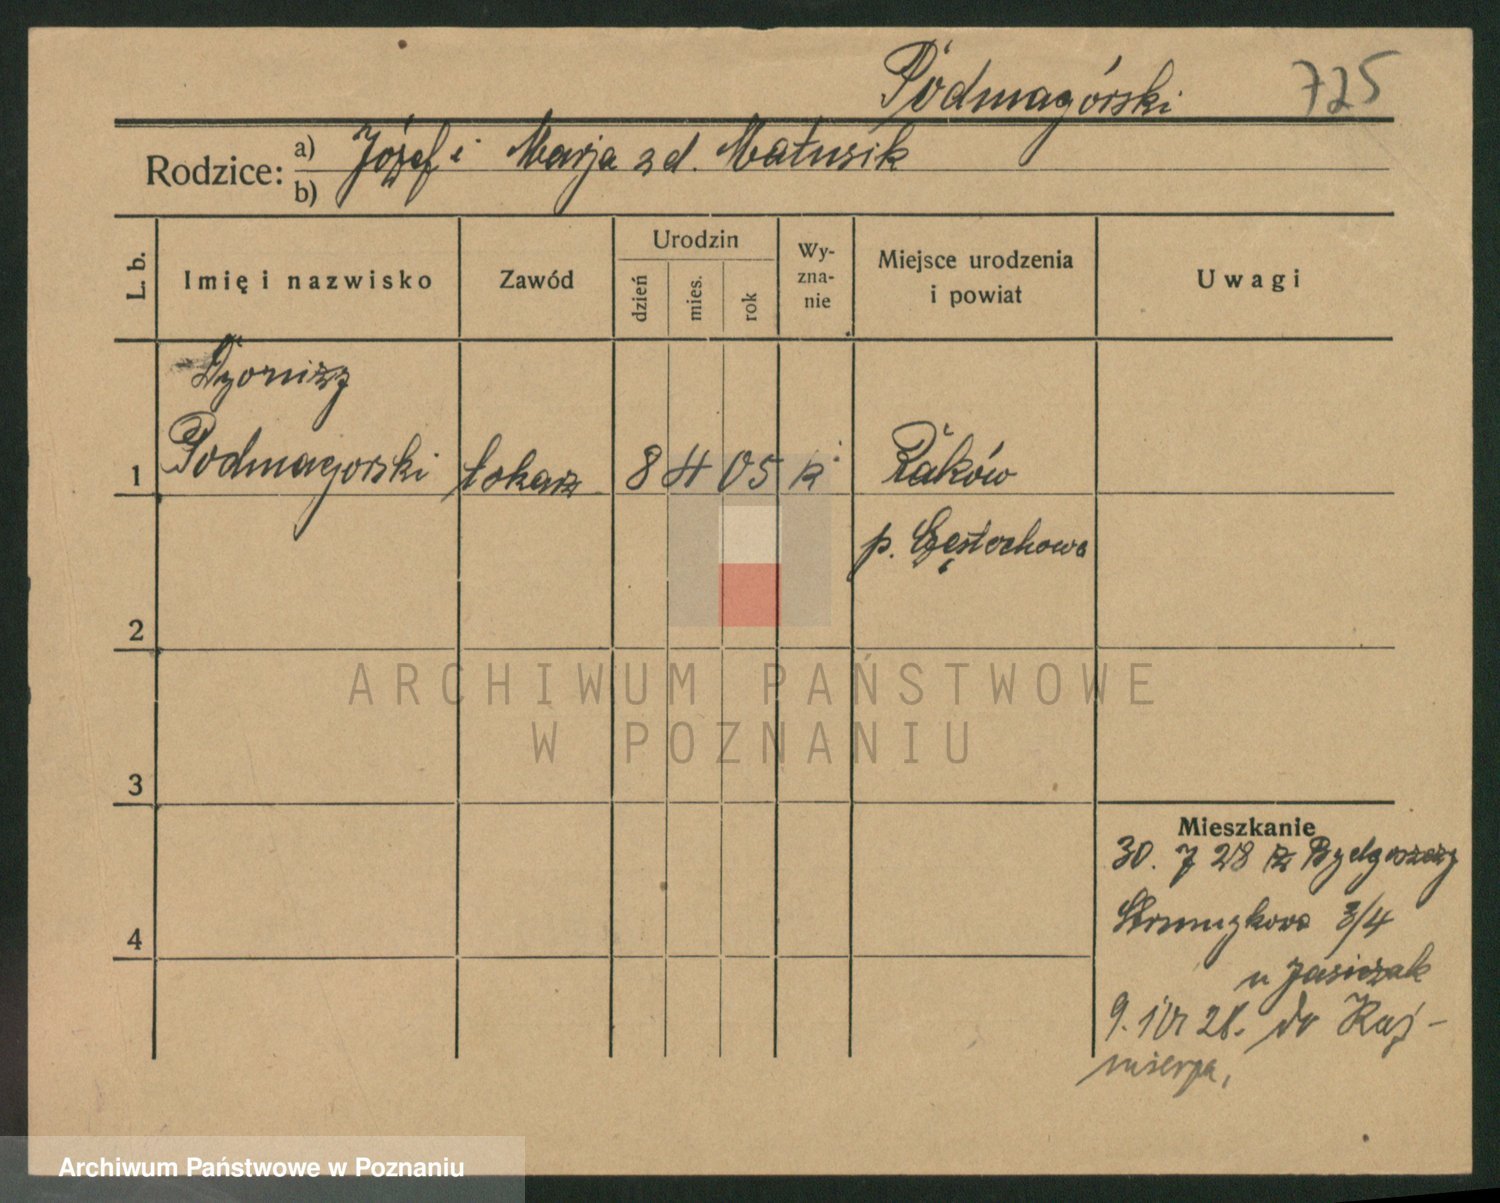 Podmagórski 725
Rodzice: a) Józef i Marja z d. Matusik
b)
L. b.
Imię i nazwisko
Zawód
Urodzin
dzień
mies.
rok
Wy-
zna-
nie
Miejsce urodzenia
i powiat
Uwagi
Dyonizy
1 Podmagorski tokarz 8 4 05 k Raków
p. Częstochowa
2
3
4
Mieszkanie
30. 7 28 z Bydgoszczy
3/4
u Jasiczak
9. 28. do Kaź-
mierza,
ARCHIWUM PAŃSTWOWE
W POZNANIU
Archiwum Państwowe w Poznaniu